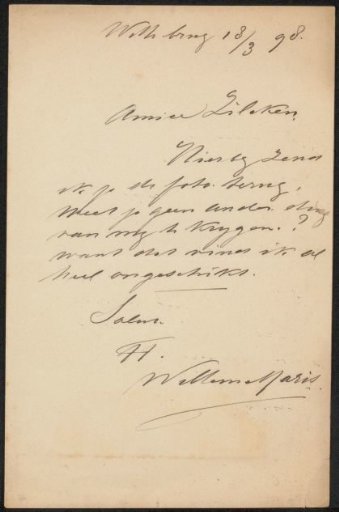 18/3 98.
Amice Zilcken
Hierbij zend
ik je de foto terug,
weet je geen ander ding
van mij te krijgen?
want dat vind ik al
heel ongeschikt.
Salut
tt.
Willem Maris.